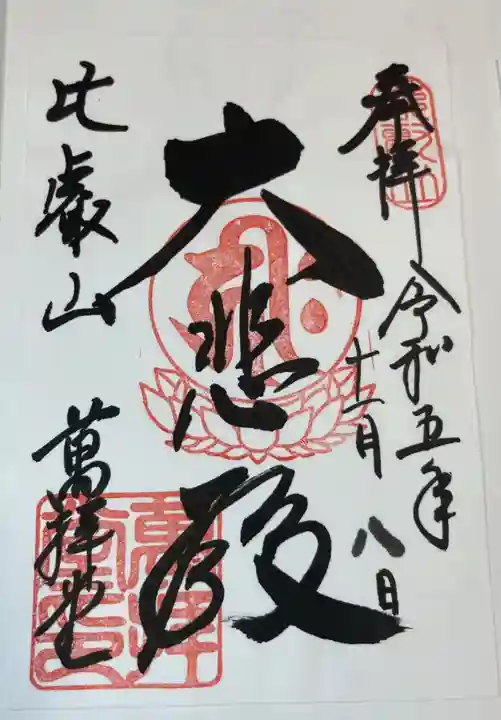 奉拝
令和五年
十一月八日
大悲殿
比叡山
萬拝堂